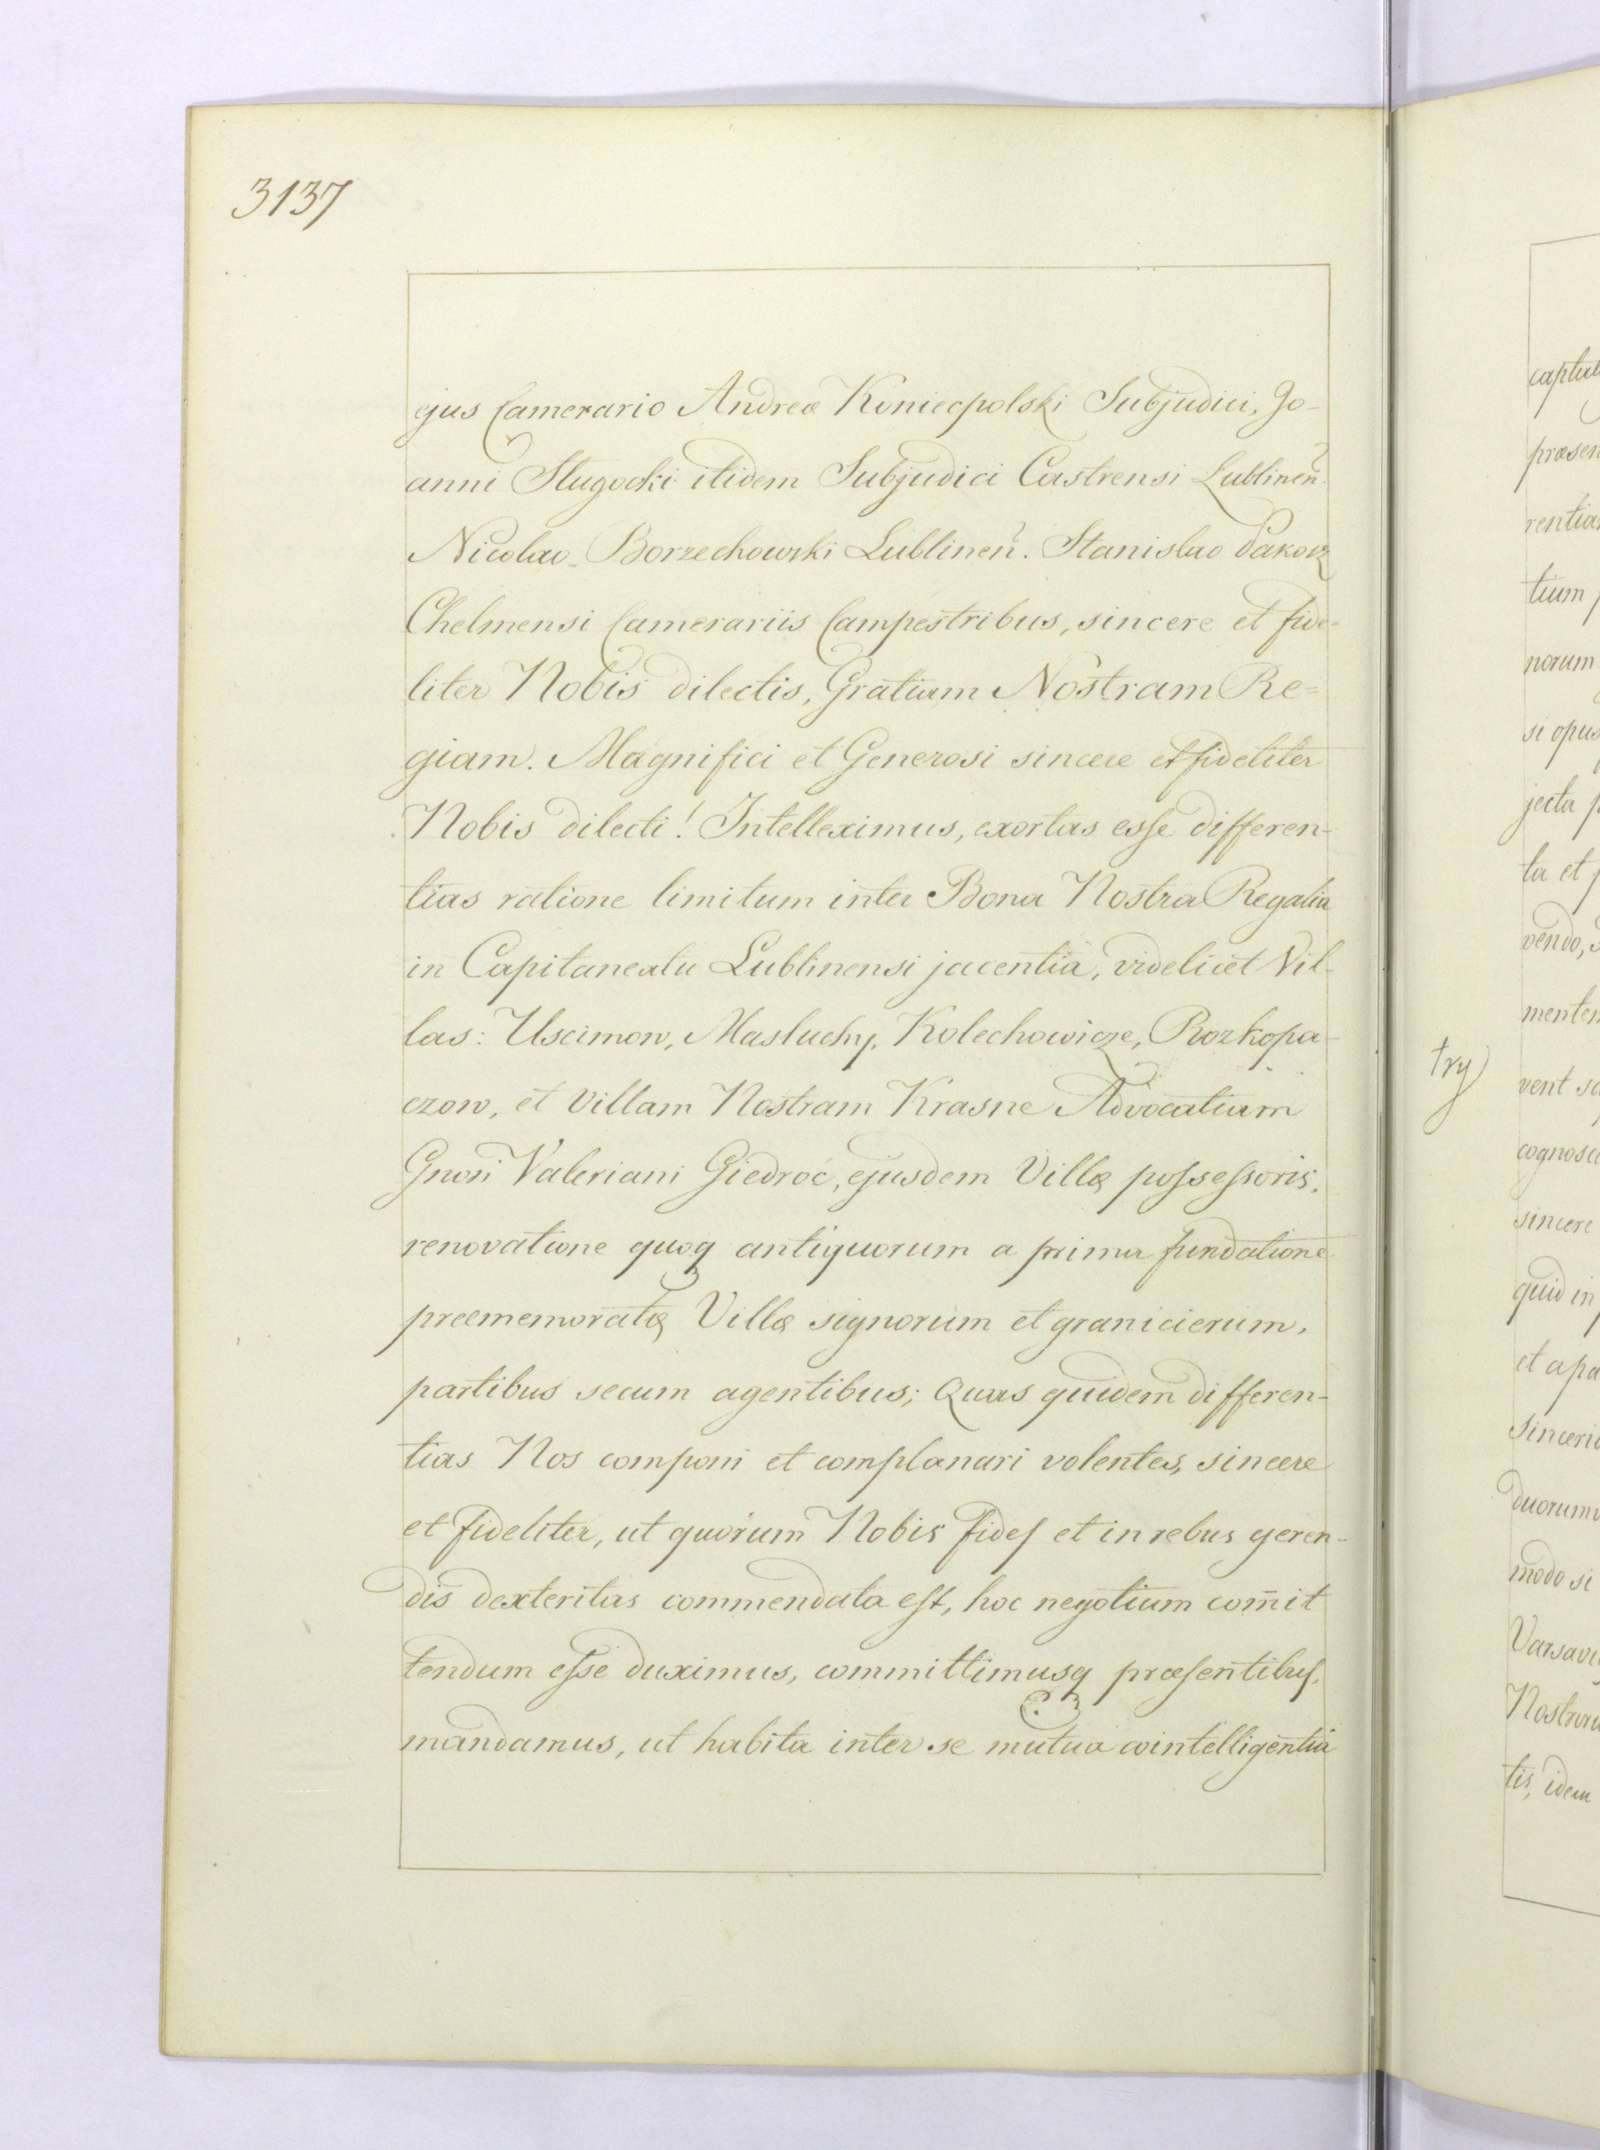 3137
ejus Camerario Andreæ Koniecpolski Subjudici, Jo-
anni Slugocki itidem Subjudici Castrensi Lublineñ.
Nicolao Borzechowski Lublineñ. Stanislao
Chelmensi Camerariis Campestribus, sincere et fide=
liter Nobis dilectis, Gratiam Nostram Re=
giam. Magnifici et Generosi sincere et fideliter
Nobis dilecti! Intelleximus, exortas esse differen-
tias ratione limitum inter Bona Nostra Regalia
in Capitaneatu Lublinensi jacentia, videlicet Vil-
las: Uscimow, Masluchy, Kolechowicze, Rozkopa-
czow, et Villam Nostram Krasne Advocatiam
Gnosi Valeriani Giedroć, ejusdem Villæ possessoris,
renovatione quoq antiquorum a prima fundatione
preememoratæ Villæ signorum et granicierum,
partibus secum agentibus; Quas quidem differen-
tias Nos componi et complanari volentes, sincere
et fideliter, ut quorum Nobis fides et in rebus geren-
dis dexteritas commendata est, hoc negotium com̄it
tendum esse duximus, committimusq præsentibus,
mandamus, ut habita inter se mutua cointelligentia
captu
præsen
rentia
tium
norum
si opus
jecta p
ta et p
vendo,
menten
try
vent
cognosce
sincere
quid in
et apa
Sinceri
duorum
modo si
Varsavi
Nostror
tis, idem